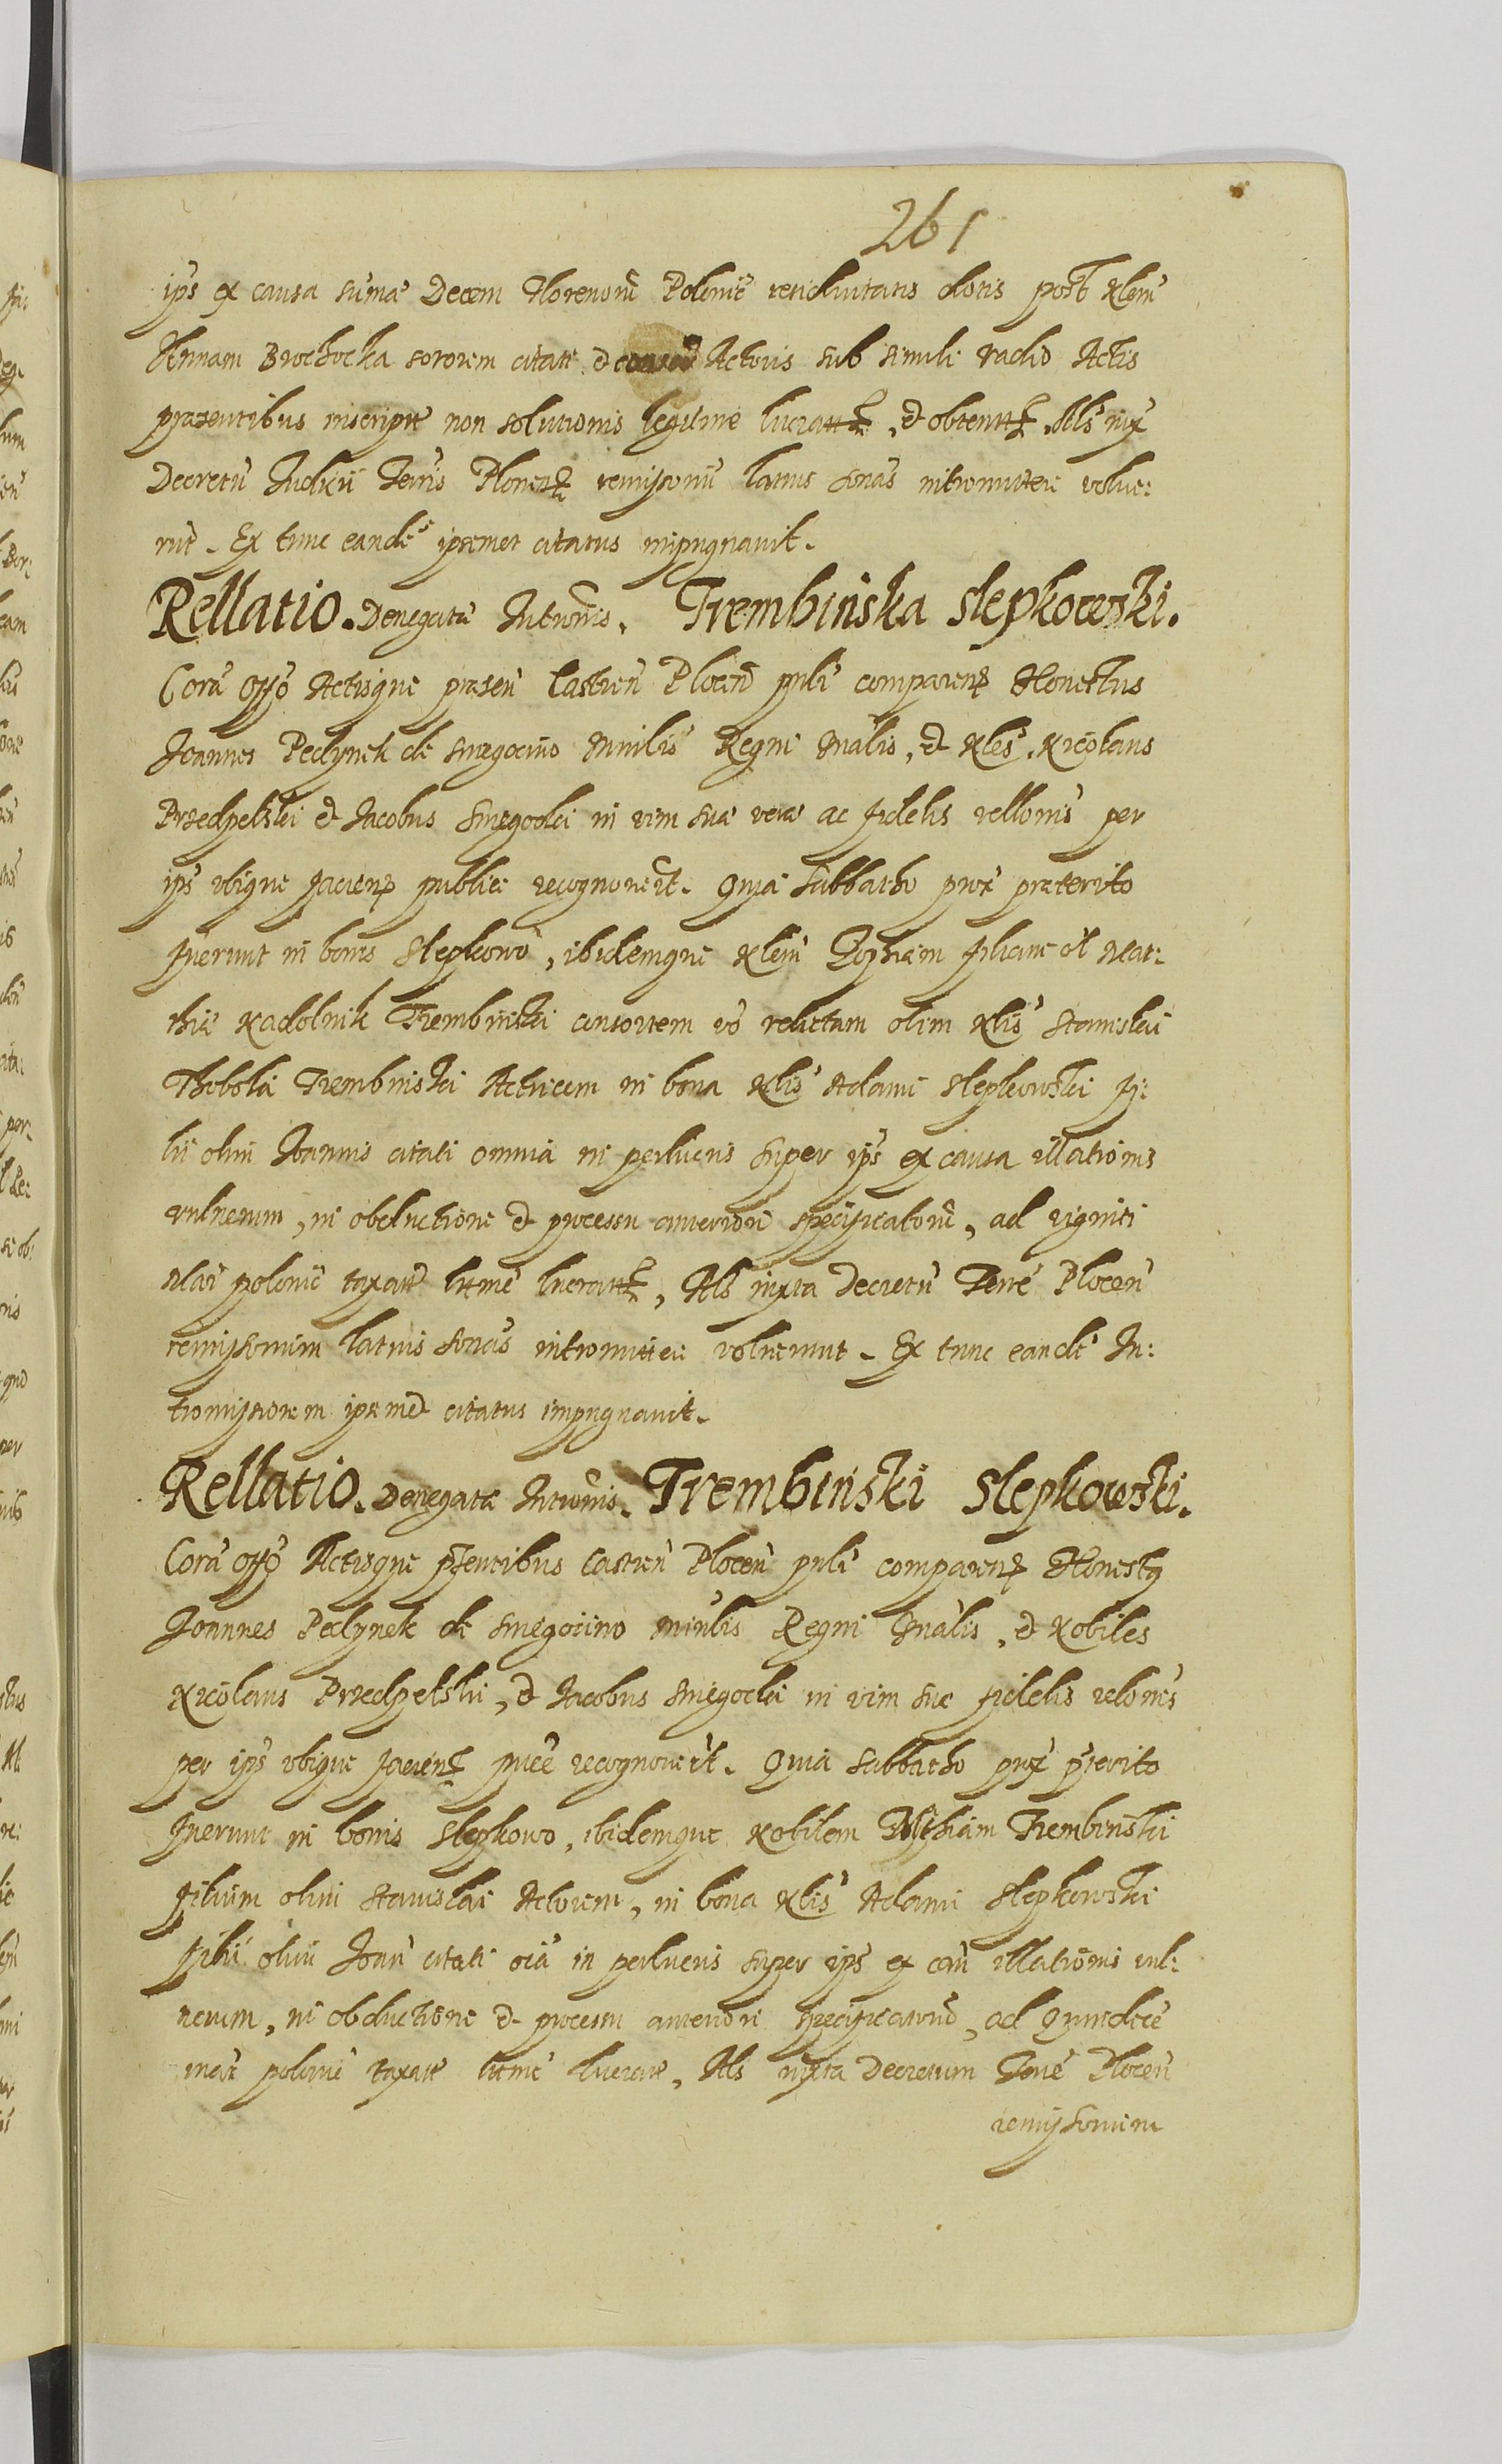 261
ips ex causa suma Decem Florenorū Polonic residuitatis dotis post Nlem
Annam Brochocka sororem citati et Actoris sub simili vadio Actis
praesentibus inscripte non solutionis legitime lucratt, et obtentt, Als iux
Decretū Iudicii Terris Plonen remissoriū latius sonās intromittere volue:
rūt. Ex tunc eandē ipsemet citatus impugnavit.
Rellatio. Denegatae Intromis. Trembinska Slepkowski.
Corā offo Actisque praesen Castren Plocen psnli comparens Honestus
Joannes Peclynek de Smegocino Minlis Regni Gnalis, et Nles, Nicolaus
Przedpelski et Jacobus Smegocki in vim sua verae ac fidelis rellonis per
ips ubique faciens publice recognoverūt. Quia Sabbatho prox praeterito
fuerunt in bonis Slepkowo, ibidemque Nlem Zophiam filiam ol Mat:
thiae Kadolnik Trembinski consortem vo relictam olim Nlis Stanislai
Thobola Trembinski Actricem in bona Nlis Adami Slepkowski fi:
lii olim Joannis citati omnia in perlucris super ips ex causa illationis
vulnerum, in obductione et processu anteriori specificatorū, ad viginti
Mar polonic taxatt lttme lucratt, Als iuxta Decretū Terre Plocen
remissorium latius sonās intromittere voluerunt. Ex tunc eandē In:
tromissionem ipsemet citatus impugnavit.
Rellatio. Denegatae Intromis. Trembinski Slepkowski.
Corā offo Actisque psentibus Castren Plocen psnli comparens Honestus
Joannes Peclynek de Smegocino minlis Regni Gnalis, et Nobiles
Nicolaus Przedpelski, et Jacobus Smegocki in vim suae fidelis relonis
per ips ubique faciens pnce recognoverūt. Quia Sabbatho prox pterito
fuerunt in bonis Slepkowo, ibidemque Nobilem Trembinski
filium olim Stanislai Actorem, in bona Nlis Adami Slepkowski
filii olim Joan citati oia in perlucris super ips ex can illationis vul:
nerum, in obductione et processu anteriori specificatorū, ad Quindecē
mar polonic taxatt lttme lucratt, Als iuxta Decretum Terre Plocen
remissorium